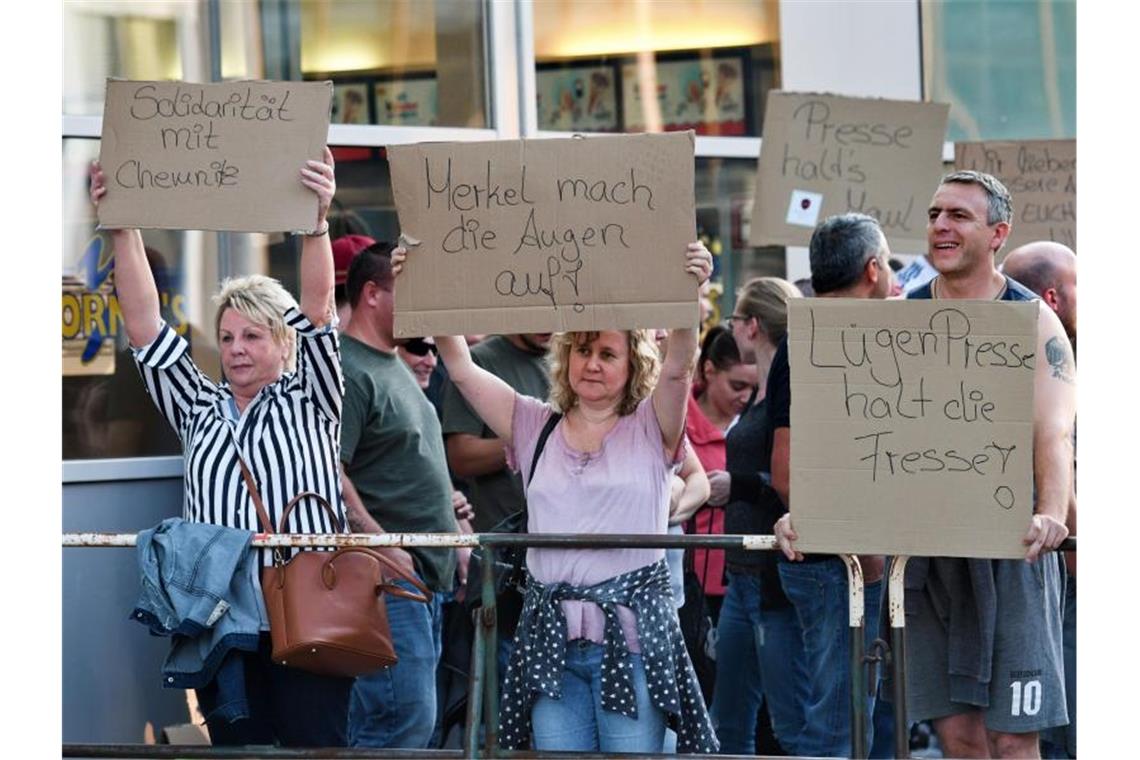 Solidarität
mit
Chemnitz
Merkel mach
die Augen
auf!
Presse
hald's
Maul
Wir lieben
EUCH
LügenPresse
halt die
Fresse!
10